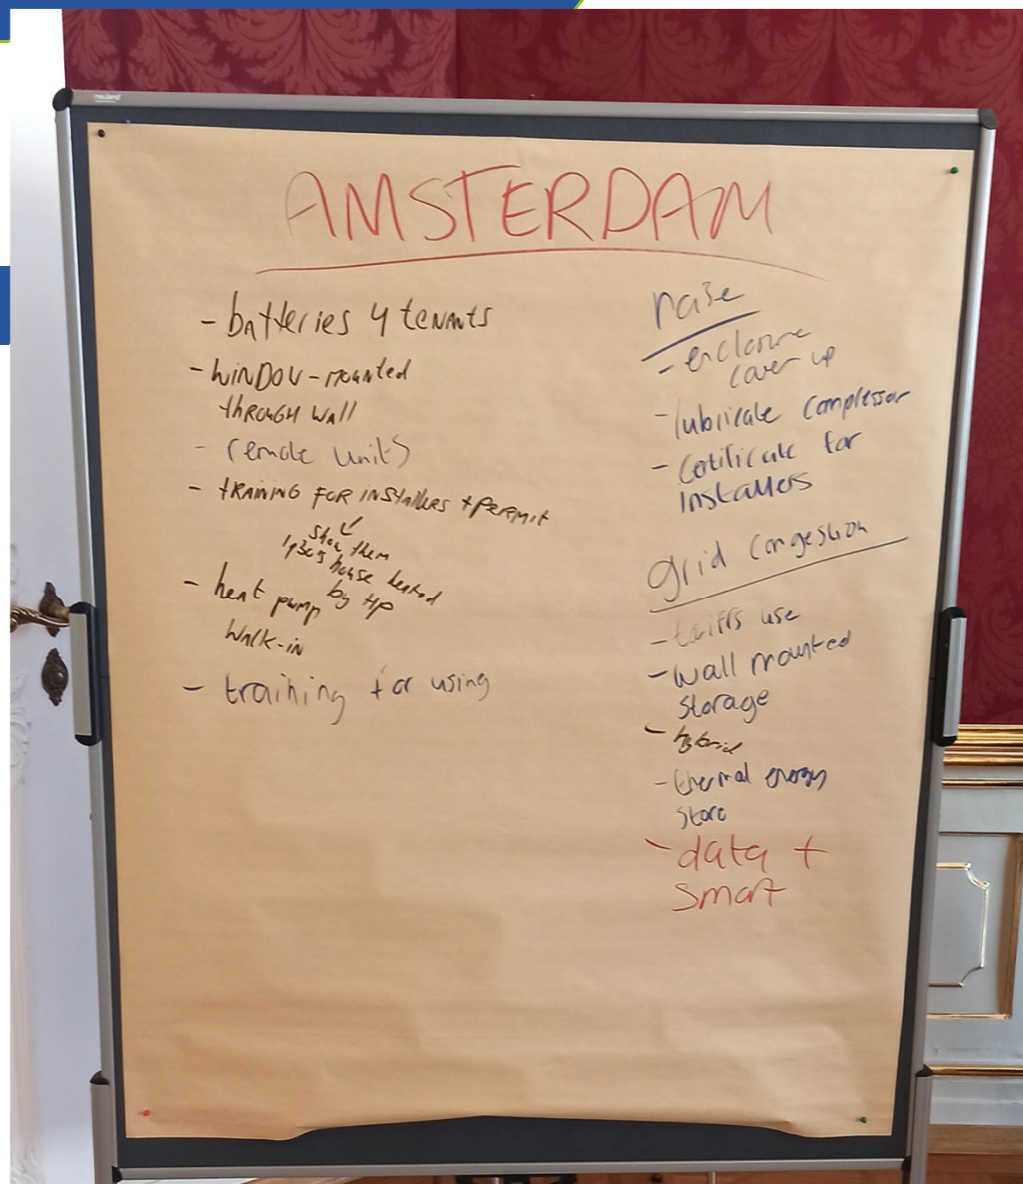 AMSTERDAM
- batteries 4 tenants
- WINDOW - mounted
through wall
- remote units
- TRAINING FOR INSTALLERS + PERMIT
show them
1930s house heated
by HP
- heat pump
WALK-IN
- training for using
noise
- enclosure
cover up
- lubricate compressor
- certificate for
installers
grid congestion
- tariffs use
- wall mounted
storage
- hybrid
- thermal energy
store
- data +
smart